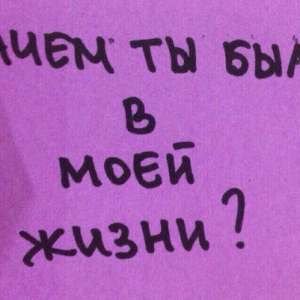 АЧЕМ ТЫ БЫЛ
В
МОЕЙ
ЖИЗНИ?